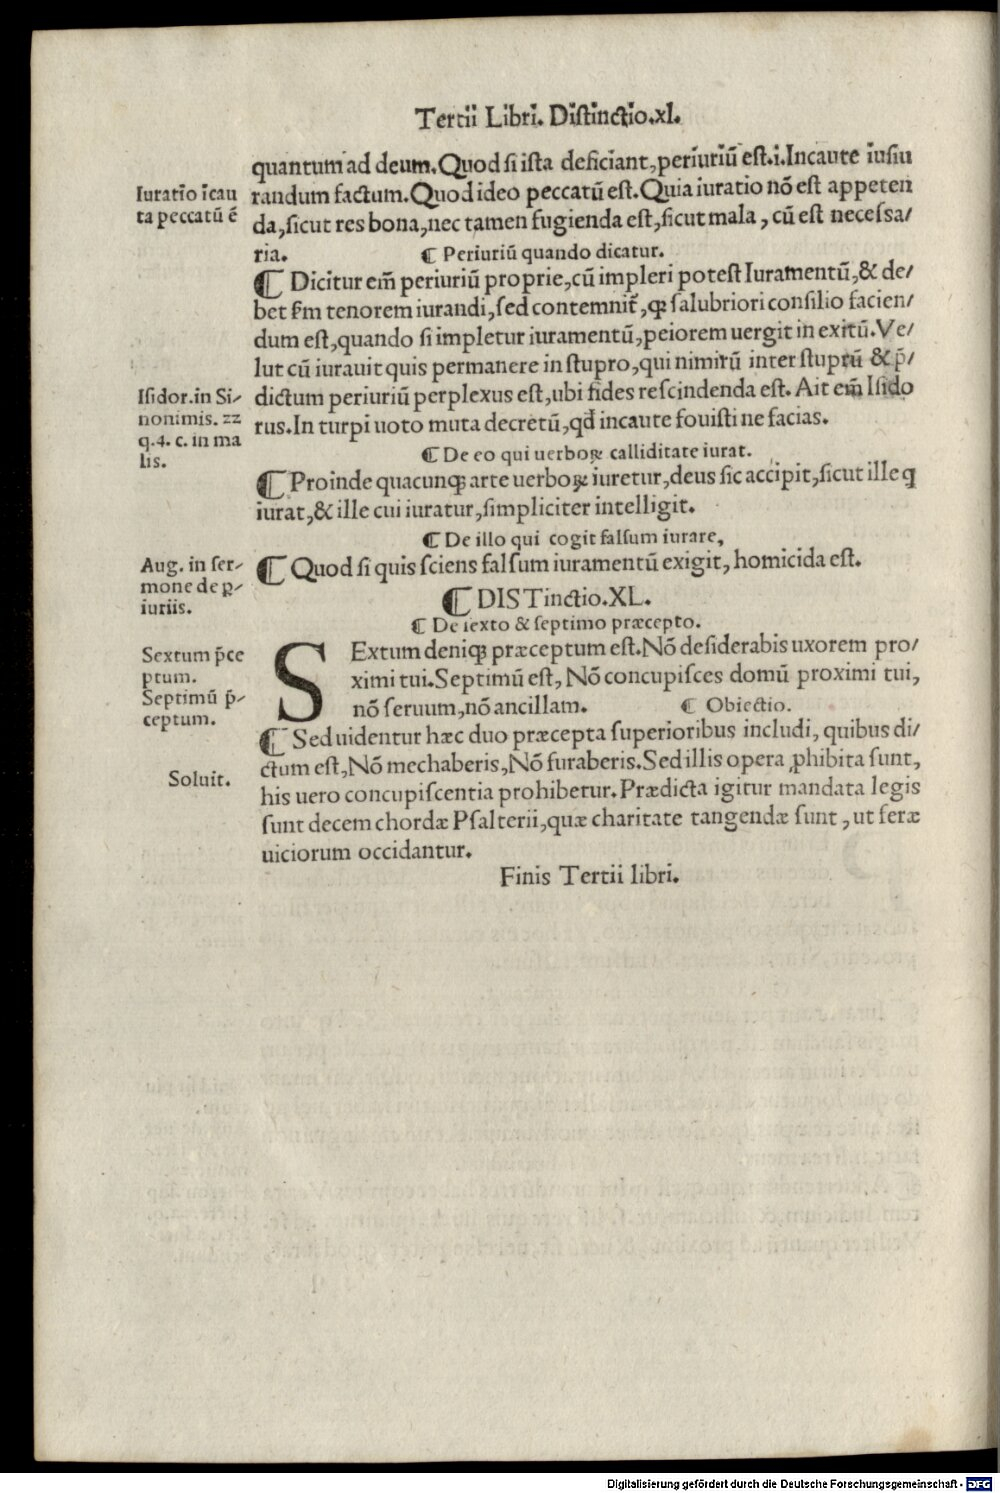 Tertii Libri. Distinctio.xl.
quantum ad deum. Quod si ista deficiant, periuriũ est.i. Incaute iusiu
Iuratio ĩcau
randum factum. Quod ideo peccatũ est. Quia iuratio nõ est appeten
ta peccatũ ẽ
da, sicut res bona, nec tamen fugienda est, sicut mala, cũ est necessa/
ria. ¶ Periuriũ quando dicatur.
¶ Dicitur em̃ periuriũ proprie, cũ impleri potest Iuramentũ, & de/
bet fm tenorem iurandi, sed contemnit᷑, qꝫ salubriori consilio facien/
dum est, quando si impletur iuramentũ, peiorem uergit in exitũ. Ve/
lut cũ iurauit quis permanere in stupro, qui nimirũ inter stuprũ & p̃/
Isidor. in Si-
dictum periuriũ perplexus est, ubi fides rescindenda est. Ait em̃ Isido
nonimis. 22
rus. In turpi uoto muta decretũ, qđ incaute fouisti ne facias.
q.4. c. in ma
lis.
¶ De eo qui uerboꝝ calliditate iurat.
¶ Proinde quacunqꝫ arte uerboꝝ iuretur, deus sic accipit, sicut ille q
iurat, & ille cui iuratur, simpliciter intelligit.
¶ De illo qui cogit falsum iurare,
Aug. in ser-
¶ Quod si quis sciens falsum iuramentũ exigit, homicida est.
mone de ꝑ-
iuriis.
¶ DISTinctio.XL.
¶ De sexto & septimo præcepto.
Sextum p̃ce
SExtum deniqꝫ præceptum est. Nõ desiderabis uxorem pro/
ptum.
ximi tui. Septimũ est, Nõ concupisces domũ proximi tui,
Septimũ p̃-
nõ seruum, nõ ancillam. ¶ Obiectio.
ceptum.
¶ Sed uidentur hæc duo præcepta superioribus includi, quibus di/
ctum est, Nõ mechaberis, Nõ furaberis. Sed illis opera ꝓhibita sunt,
Soluit.
his uero concupiscentia prohibetur. Prædicta igitur mandata legis
sunt decem chordæ Psalterii, quæ charitate tangendæ sunt, ut feræ
uiciorum occidantur.
Finis Tertii libri.
Digitalisierung gefördert durch die Deutsche Forschungsgemeinschaft - DFG